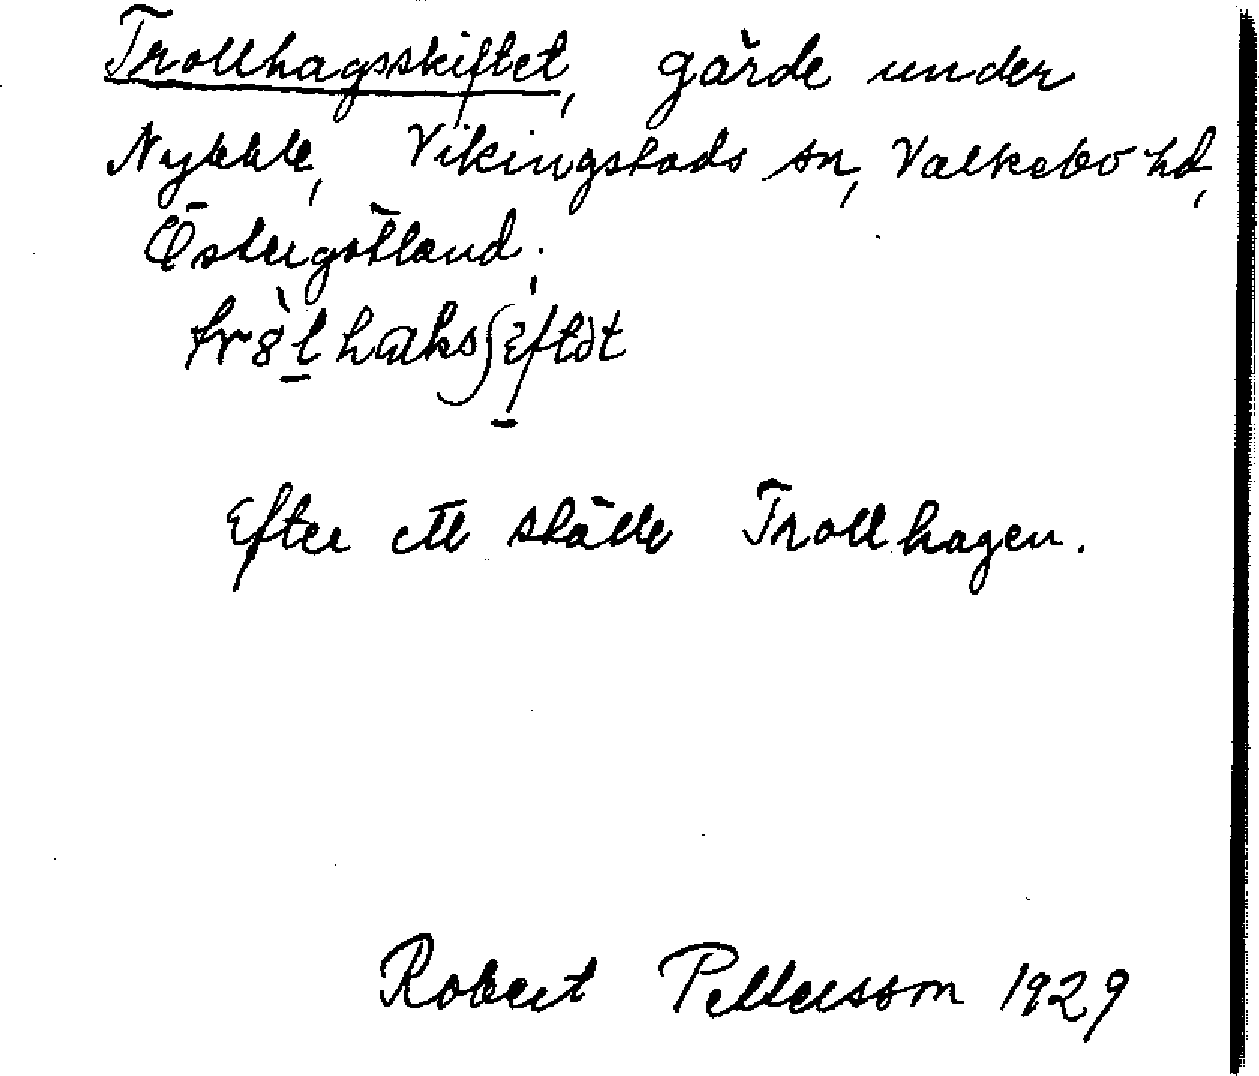 Trollhagsskiftet, gärde under
Nybble, Vikingstads sn, Valkebo hd,
Östergötland.
Efter ett ställe Trollhagen.
Robert Pettersson 1929